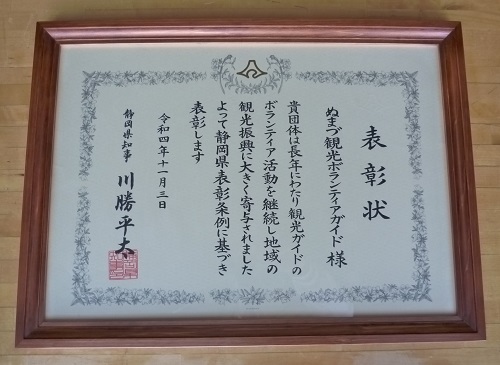 表彰状
ぬまづ観光ボランティアガイド 様
貴団体は長年にわたり観光ガイドの
ボランティア活動を継続し地域の
観光振興に大きく寄与されました
よって静岡県表彰条例に基づき
表彰します
令和四年十一月三日
静岡県知事 川勝平太